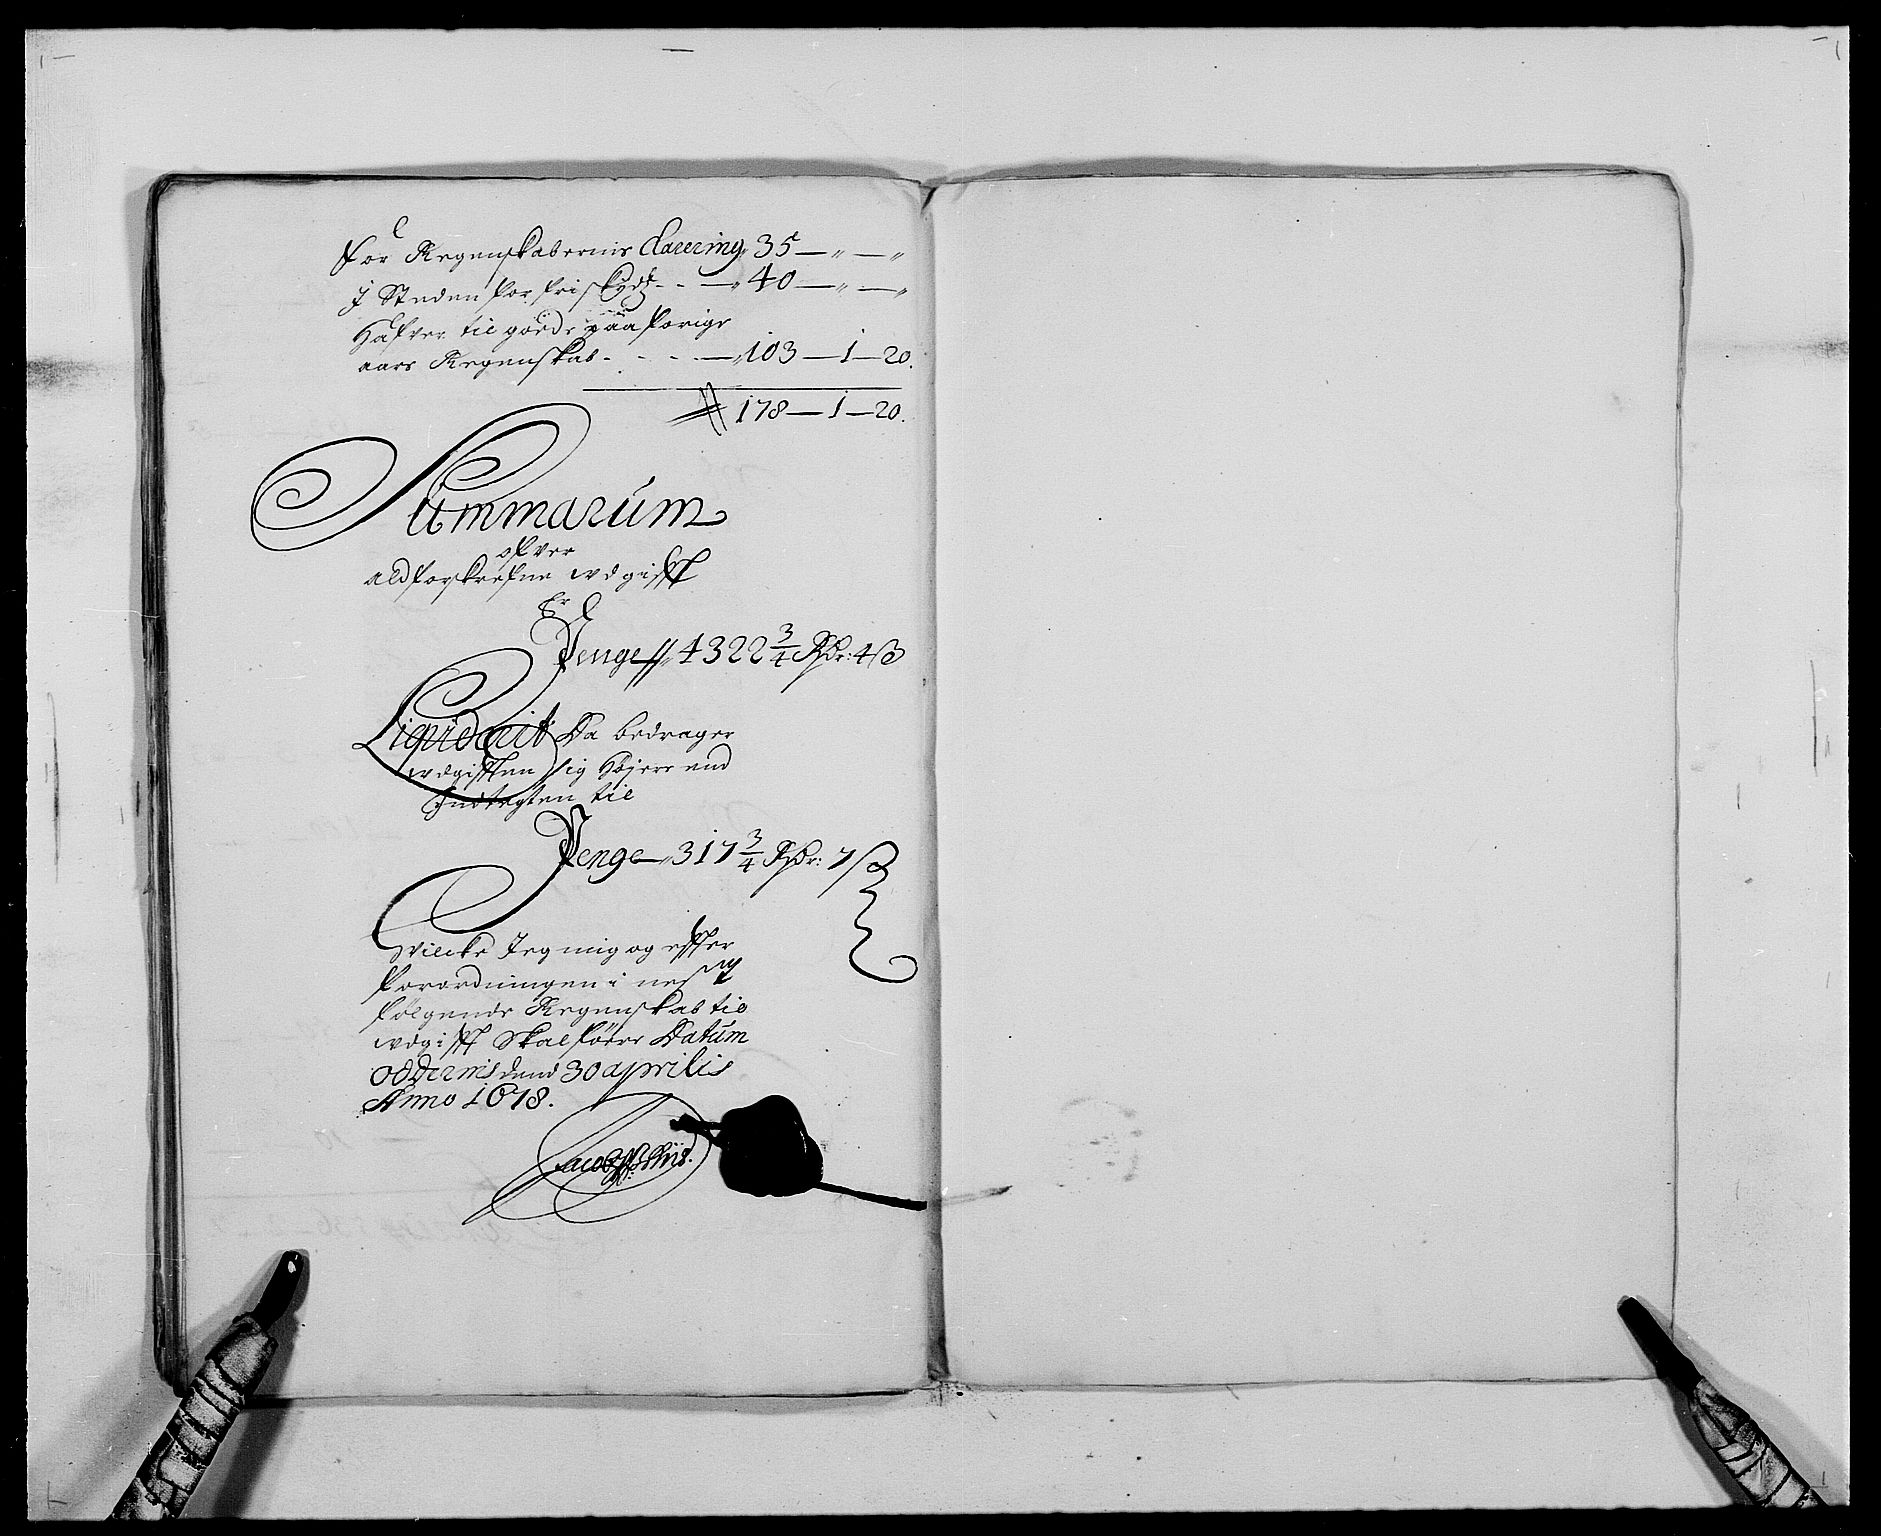 For Regenskabernis Clarering „ 35 — „ — „
J Steden for friskydtz - - — „ 40 — „ — „
Hafver til gode paa forige
aars Regenskab - - - - — „ 103 — 1 — 20.
178 — 1 — 20.
Summarum
ofver
ald forskrefne wdgifft
Er
Penge „ 4322 3/4 Rdr: 4 β
Liqviderit Da bedrager
wdgifften sig Højere end
Indtegten til
Penge — „ 317 3/4 Rdr: 7 β
Hvilcke Jeg mig og effter
forordningen i nest
følgende Regenskab til
wdgifft skal føere Datum
Oddernis dend 30 aprilis
Anno 1678.
Jacob